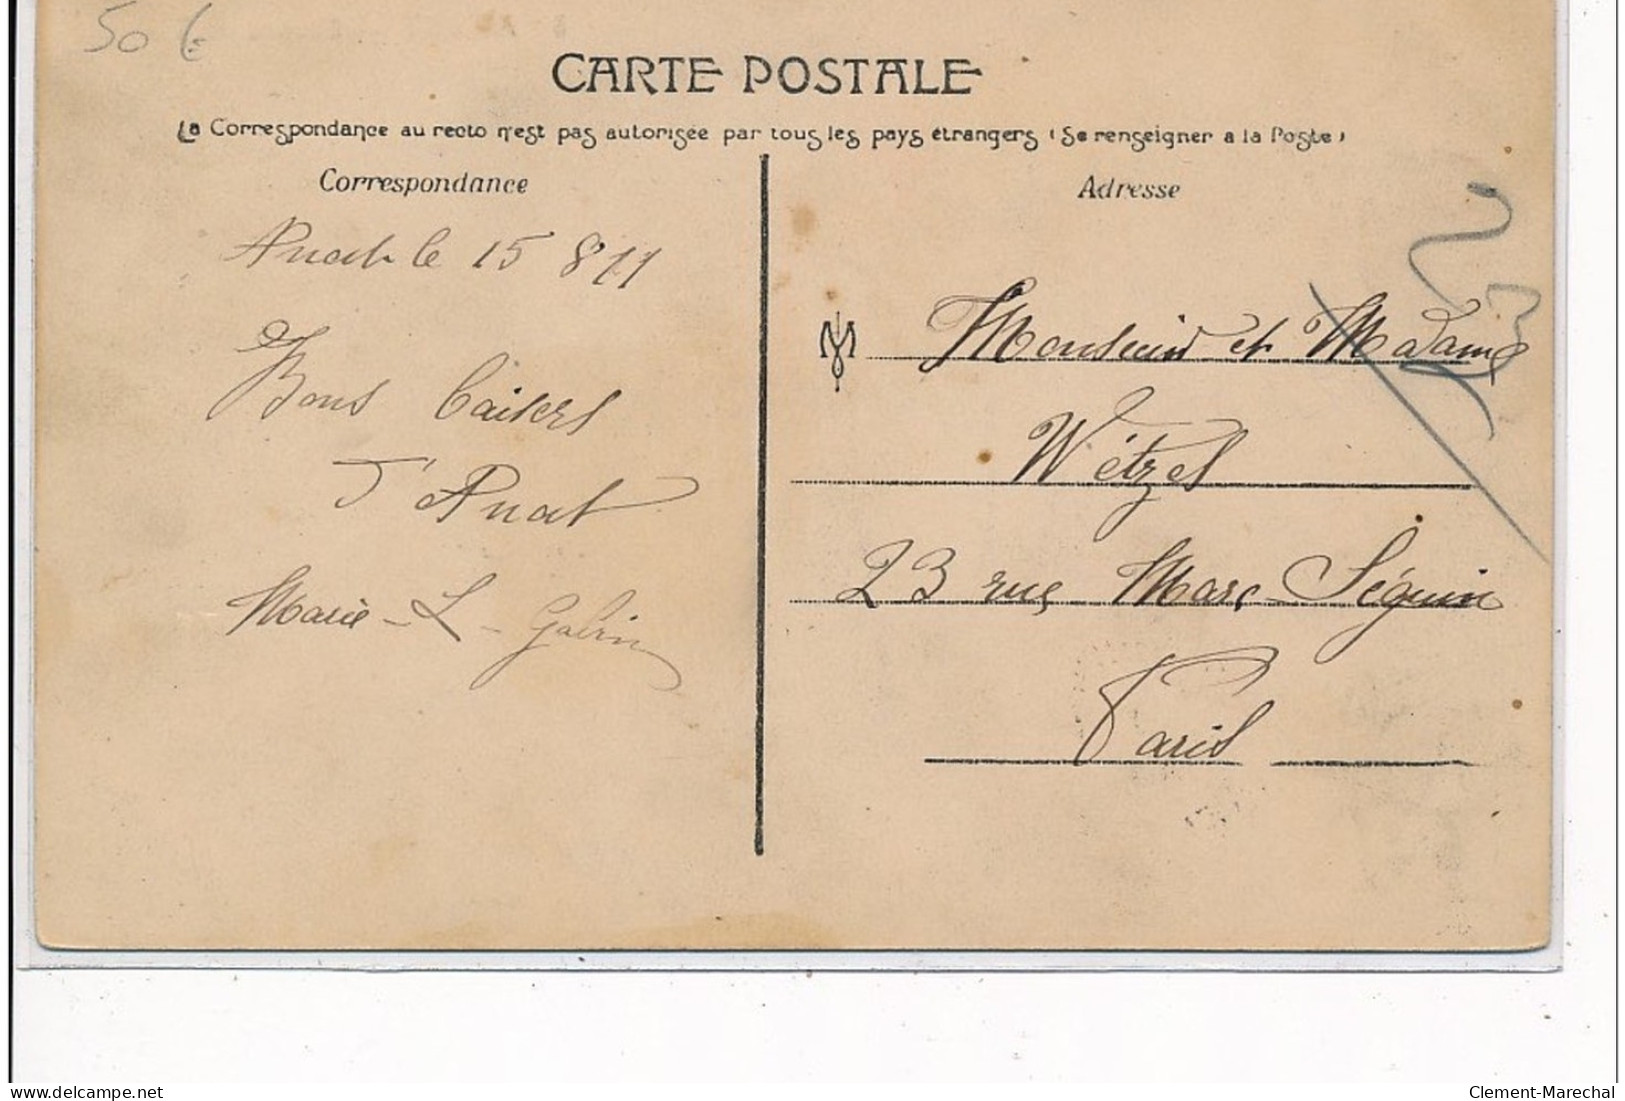 50 €
CARTE POSTALE
La Correspondance au recto n'est pas autorisée par tous les pays étrangers (Se renseigner a la Poste)
Correspondance
Adresse
Anost le 15 8 11
Bons baisers
d'Anost
Marie - L - Gabrin
Monsieur et Madame
Wetzel
23 rue Marc Séguin
Paris
delcampe.net
Clement-Marechal